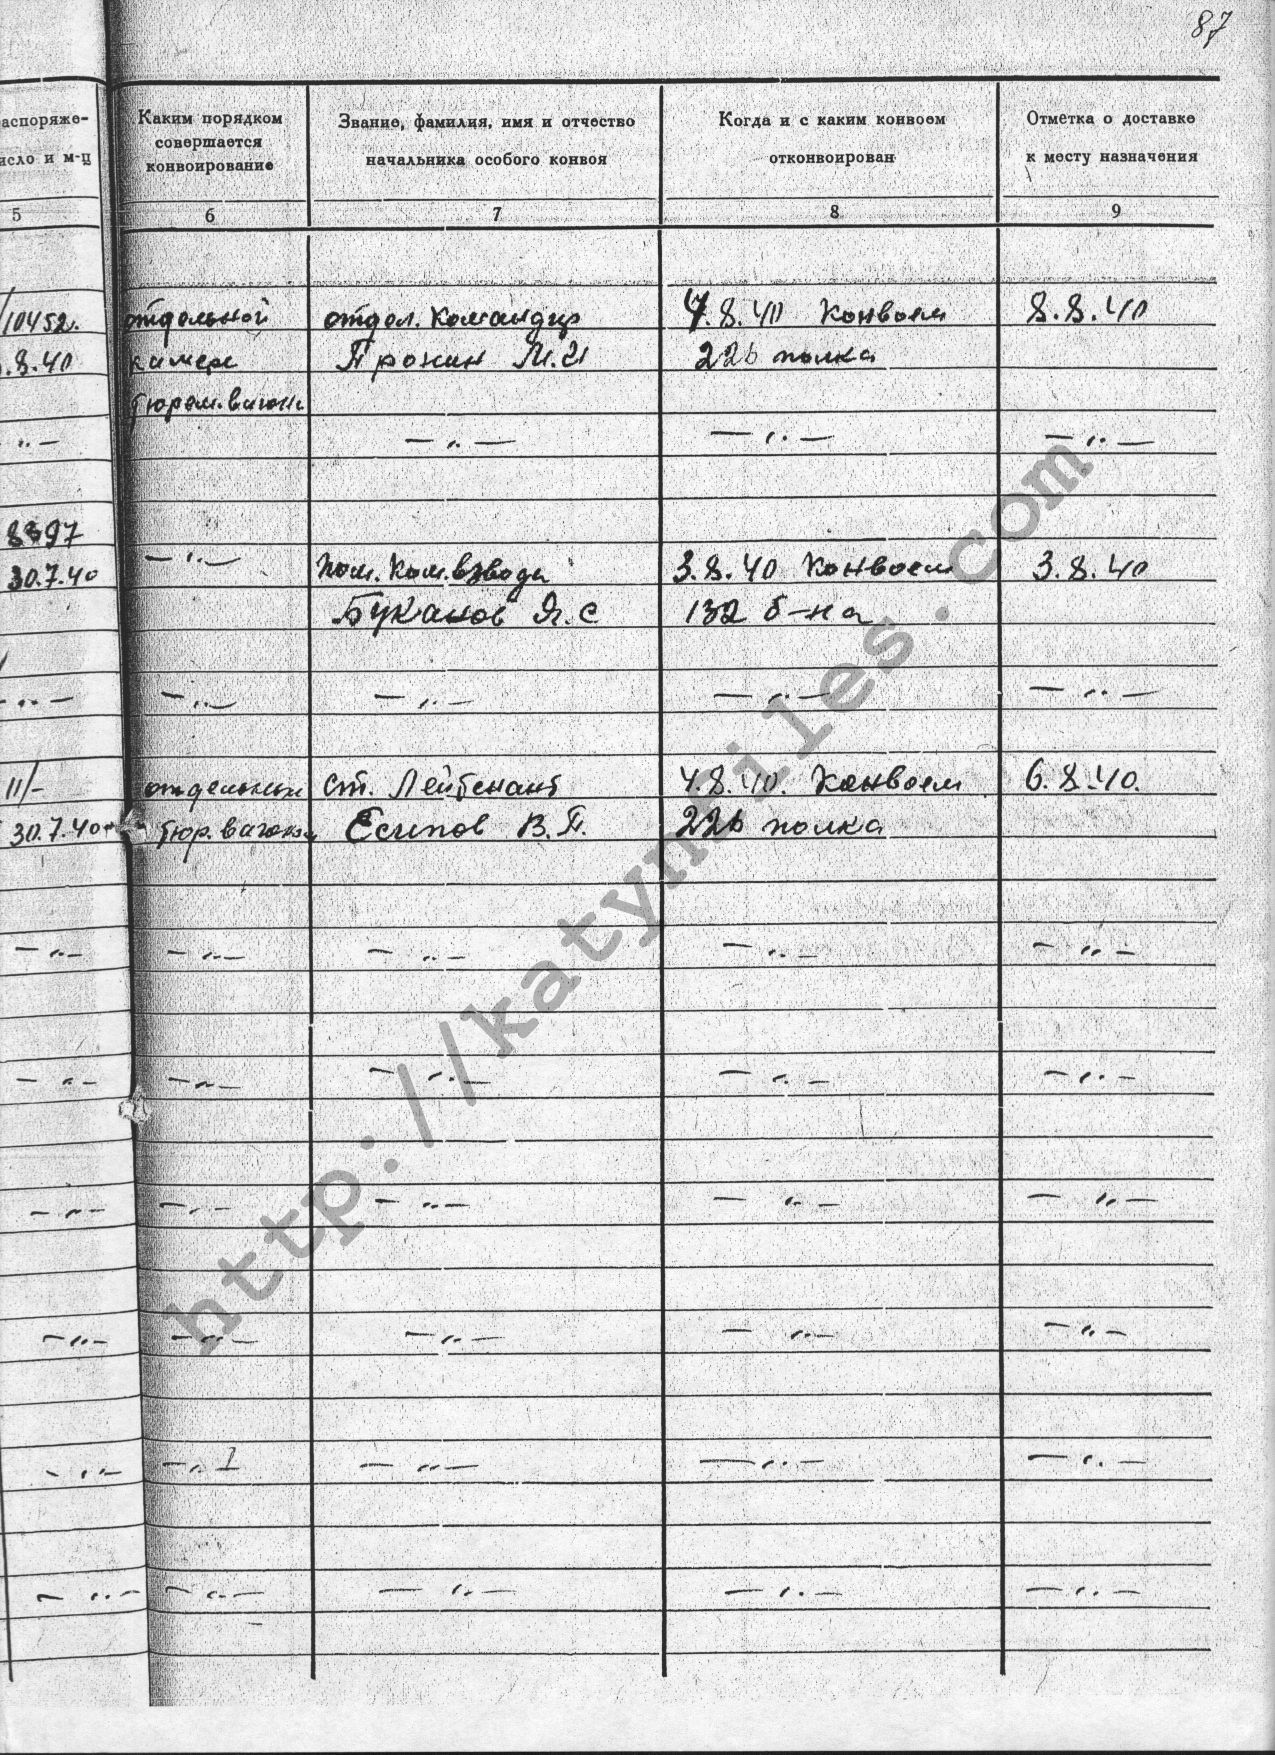 87
аспоряже-
исло и м-ц
Каким порядком
совершается
конвоирование
Звание, фамилия, имя и отчество
начальника особого конвоя
Когда и с каким конвоем
отконвоирован
Отметка о доставке
к месту назначения
5 6 7 8 9
/10452. отдельной отдел. командир 4.8.40 конвоем 8.8.40
.8.40 камере Пронин М.И 226 полка
тюрем. вагона
— " — — " — — " — — " —
8397
30.7.40 — " — пом. ком. взвода 3.8.40 конвоем 3.8.40
Буканов Я.С 132 б-на
— " — — " — — " — — " — — " —
11/- отдельным ст. Лейтенант 4.8.40. конвоем 6.8.40.
30.7.40 тюр. вагоном Есипов В.П. 226 полка
— " — — " — — " — — " — — " —
— " — — " — — " — — " — — " —
— " — — " — — " — — " — — " —
— " — — " — — " — — " — — " —
— " — — " — — " — — " — — " —
— " — — " — — " — — " — — " —
http://katynfiles.com